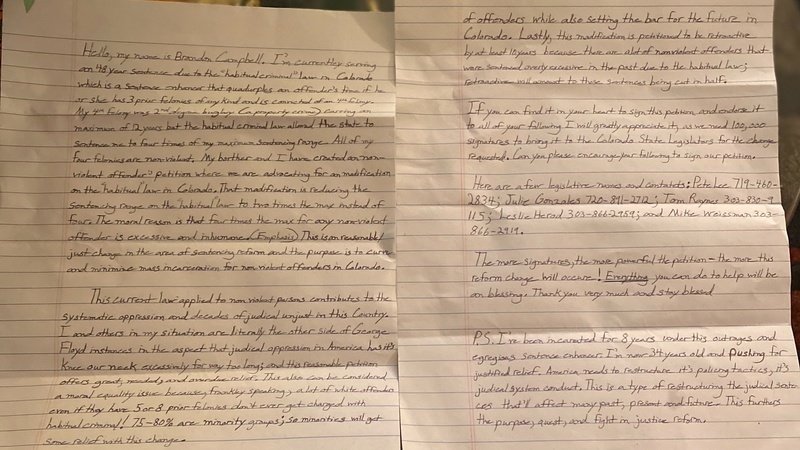 Hello, my name is Brandon Campbell. I'm currently serving
an 48 year sentence due to the "habitual criminal" law in Colorado
which is a sentence enhancer that quadruples an offender's time if he
or she has 3 prior felonies of any kind and is convicted of an 4th felony.
My 4th felony was 2nd degree burglary (a property crime) carrying an
maximum of 12 years but the habitual criminal law allowed the state to
sentence me to four times of my maximum sentencing range. All of my
four felonies are nonviolent. My borther and I have created an non-
violent offender's petition where we are advocating for an modification
on the "habitual" law in Colorado. That modification is reducing the
sentencing range on the "habitual" law to two times the max instead of
four. The moral reason is that four times the max for any nonviolent
offender is excessive and inhumane (Emphasis) This is an reasonable/
just change in the area of sentencing reform and the purpose is to curve
and minimize mass incarceration for nonviolent offenders in Colorado.
This current law applied to nonviolent persons contributes to the
systematic oppression and decades of judical unjust in this Country.
I and others in my situation are literally the other side of George
Floyd instances in the aspect that judicial oppression in America has it's
knee our neck excessively for way too long; and this reasonable petition
offers great, needed, and overdue relief. This also can be considered
a moral equality issue because, frankly speaking, a lot of white offenders
even if they have 5 or 8 prior felonies don't ever get charged with
habitual criminal! 75-80% are minority groups; so minorities will get
some relief with this change.
of offenders while also setting the bar for the future in
Colorado. Lastly, this modification is petitioned to be retroactive
by at least 10 years because there are alot of nonviolent offenders that
were sentenced overly excessive in the past due to the habitual law;
retroactive will amount to those sentences being cut in half.
If you can find it in your heart to sign this petition and endorse it
to all of your following I will greatly appreciate it, as we need 100,000
signatures to bring it to the Colorado State Legislators for the change
requested. Can you please encourage your following to sign our petition.
Here are a few legislative names and contacts: Pete Lee 719-460-
2834; Julie Gonzales 720-891-2712; Tom Raynes 303-830-9
115; Leslie Herod 303-866-2959; and Mike Weissman 303-
866-2919.
The more signatures, the more powerful the petition - the more this
reform change will occure! Everything you can do to help will be
an blessing. Thank you very much and stay blessed
P.S. I've been incarated for 8 years under this outrages and
egregious sentence enhancer. I'm now 34 years old and pushing for
justified relief. America needs to restructure it's policing tactics, it's
judicial system conduct. This is a type of restructuring the judicial senten-
ces that'll affect many past, present and future. This furthers
the purpose, quest, and fight in justice reform.